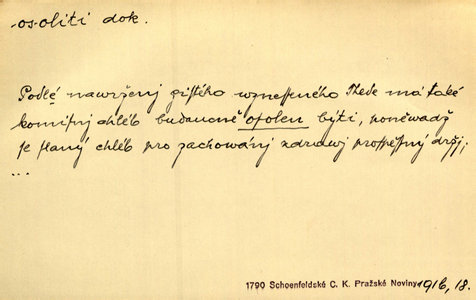 -os-oliti dok.
Podlé nawrženj gistého wznesseného Thede má také
komisnj chléb budaucně osolen býti, poněwadž
je slaný chléb pro zachowánj zdrawj prospěssný drže;
...
1790 Schoenfeldské C. K. Pražské Noviny 1916, 18.